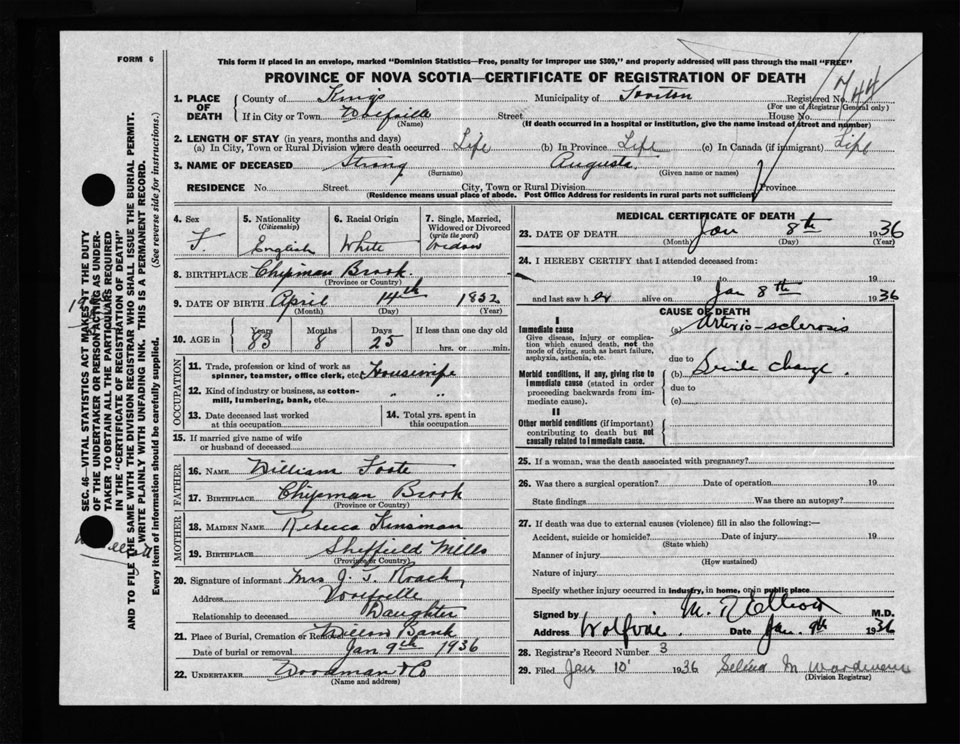 FORM 6
This form if placed in an envelope, marked "Dominion Statistics—Free, penalty for improper use $300," and properly addressed will pass through the mail "FREE"
PROVINCE OF NOVA SCOTIA—CERTIFICATE OF REGISTRATION OF DEATH
744
1. PLACE OF DEATH { County of Kings Municipality of Registered No.
(For use of Registrar General only)
If in City or Town Wolfville Street House No.
(Name) (If death occurred in a hospital or institution, give the name instead of street and number)
2. LENGTH OF STAY (in years, months and days)
(a) In City, Town or Rural Division where death occurred Life (b) In Province Life (c) In Canada (if immigrant) Life
3. NAME OF DECEASED Strong Augusta
(Surname) (Given name or names)
RESIDENCE No. Street City, Town or Rural Division Province
(Residence means usual place of abode. Post Office Address for residents in rural parts not sufficient)
4. Sex F.
5. Nationality (Citizenship) English
6. Racial Origin White
7. Single, Married, Widowed or Divorced (write the word) Widow
8. BIRTHPLACE Chipman Brook.
(Province or Country)
9. DATE OF BIRTH April 14th 1852
(Month) (Day) (Year)
10. AGE in Years 83 Months 8 Days 25 If less than one day old hrs. or min.
OCCUPATION
11. Trade, profession or kind of work as spinner, teamster, office clerk, etc. Housewife
12. Kind of industry or business, as cotton-mill, lumbering, bank, etc. " "
13. Date deceased last worked at this occupation
14. Total yrs. spent in this occupation
15. If married give name of wife or husband of deceased
FATHER
16. NAME William Foote
17. BIRTHPLACE Chipman Brook
(Province or Country)
MOTHER
18. MAIDEN NAME Rebecca Kinsman
19. BIRTHPLACE Sheffield Mills
(Province or Country)
20. Signature of informant Mrs J. F. Roach
Address Wolfville
Relationship to deceased Daughter
21. Place of Burial, Cremation or Removal Willow Bank
Date of burial or removal Jan 9th 1936
22. UNDERTAKER Woodman & Co
(Name and address)
MEDICAL CERTIFICATE OF DEATH
23. DATE OF DEATH Jan 8th 1936
(Month) (Day) (Year)
24. I HEREBY CERTIFY that I attended deceased from:
19 to 19
and last saw her alive on Jan 8th 1936
CAUSE OF DEATH
I
Immediate cause (a) Arterio-sclerosis
Give disease, injury or complication which caused death, not the mode of dying, such as heart failure, asphyxia, asthenia, etc.
due to
Morbid conditions, if any, giving rise to immediate cause (stated in order proceeding backwards from immediate cause).
(b) Senile change.
due to
(c)
II
Other morbid conditions (if important) contributing to death but not causally related to immediate cause.
25. If a woman, was the death associated with pregnancy?
26. Was there a surgical operation? Date of operation 19
State findings Was there an autopsy?
27. If death was due to external causes (violence) fill in also the following:—
Accident, suicide or homicide? Date of injury 19
(State which)
Manner of injury
(How sustained)
Nature of injury
Specify whether injury occurred in industry, in home, or in public place
Signed by M. R. Elliott M.D.
Address Wolfville. Date Jan. 9th 1936
28. Registrar's Record Number 3
29. Filed Jan 10 1936 Selina M
(Division Registrar)
SEC. 46—VITAL STATISTICS ACT MAKES IT THE DUTY
OF THE UNDERTAKER OR PERSON ACTING AS UNDER-
TAKER TO OBTAIN ALL THE PARTICULARS REQUIRED
IN THE "CERTIFICATE OF REGISTRATION OF DEATH"
AND TO FILE THE SAME WITH THE DIVISION REGISTRAR WHO SHALL ISSUE THE BURIAL PERMIT.
WRITE PLAINLY WITH UNFADING INK. THIS IS A PERMANENT RECORD.
Every item of information should be carefully supplied. (See reverse side for instructions.)